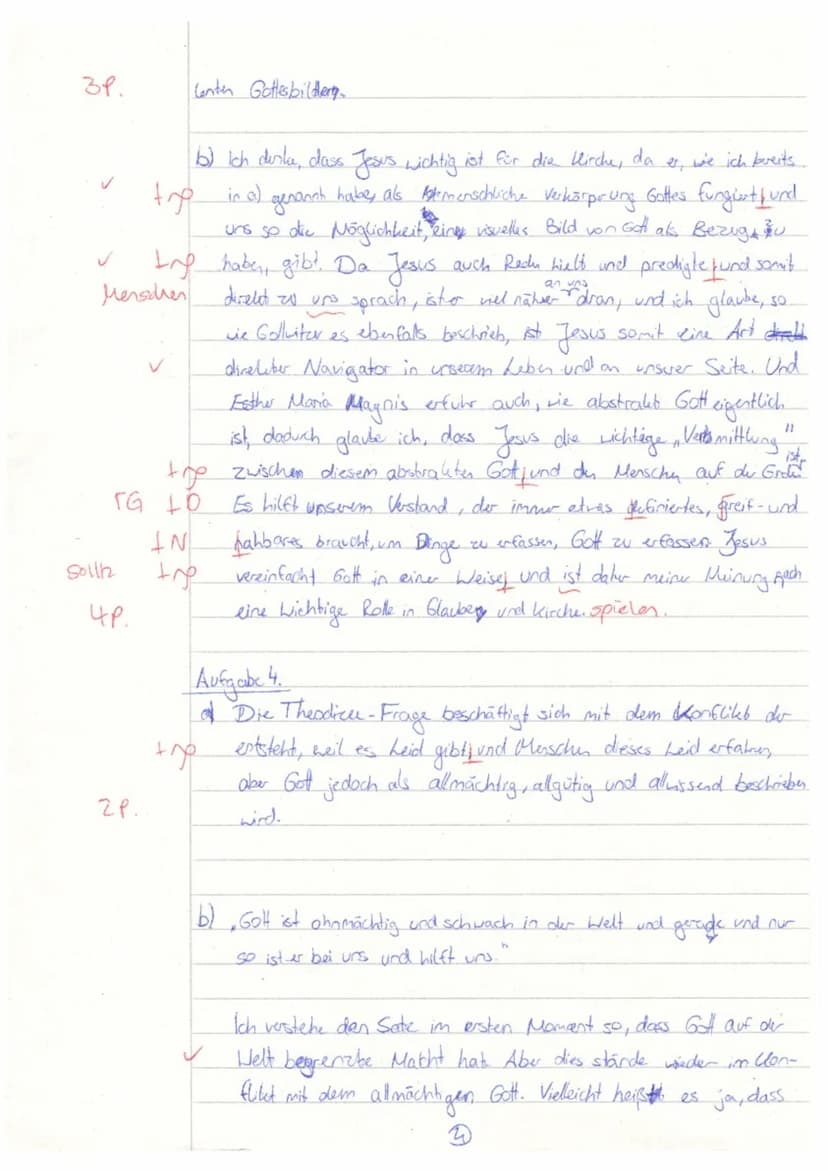 3P. lenten Gottesbildern.
b) Ich denke, dass Jesus wichtig ist für die Kirche, da er, wie ich bereits
✓ in a) genannt habe, als menschliche Verkörperung Gottes fungiert, und
uns so die Möglichkeit, ein visuelles Bild von Gott als Bezug zu
✓ haben, gibt. Da Jesus auch Reden hielt und predigte, und somit
Menschen direkt zu uns sprach, ist er viel näher an uns dran, und ich glaube, so
wie Gollwitzer es ebenfalls beschrieb, ist Jesus somit eine Art
✓ direkter Navigator in unserem Leben und an unserer Seite. Und
Esther Maria Magnis erfuhr auch, wie abstrakt Gott eigentlich
ist, dadurch glaube ich, dass Jesus die wichtige „Vermittlung"
zwischen diesem abstrakten Gott, und den Menschen auf der Erde ist.
TG Es hilft unserem Verstand, der immer etwas definiertes, greif- und
fahbares braucht, um Dinge zu erfassen, Gott zu erfassen. Jesus
sollte vereinfacht Gott in einer Weise, und ist daher meiner Meinung nach
4P. eine wichtige Rolle in Glauben und Kirche. spielen.
Aufgabe 4.
a) Die Theodizee-Frage beschäftigt sich mit dem Konflikt der
entsteht, weil es Leid gibt, und Menschen dieses Leid erfahren,
aber Gott jedoch als allmächtig, allgütig und allwissend beschrieben
2P. wird.
b) „Gott ist ohnmächtig und schwach in der Welt und gerade und nur
so ist er bei uns und hilft uns."
Ich verstehe den Satz im ersten Moment so, dass Gott auf der
✓ Welt begrenzte Macht hat. Aber dies stände wieder im Kon-
flikt mit dem allmächtigen Gott. Vielleicht heißt es ja, dass